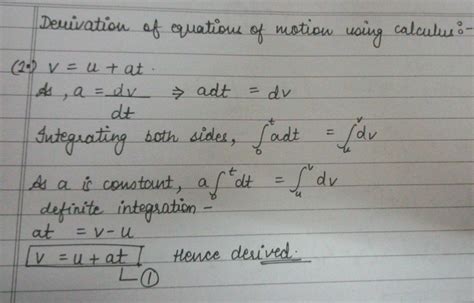 Derivation of equations of motion using calculus:-
(2.) v = u + at.
As, a = dv/dt ⇒ adt = dv
Integrating both sides, ∫₀ᵗ adt = ∫ᵤᵛ dv
As a is constant, a∫₀ᵗ dt = ∫ᵤᵛ dv
definite integration -
at = v - u
v = u + at Hence derived.
①